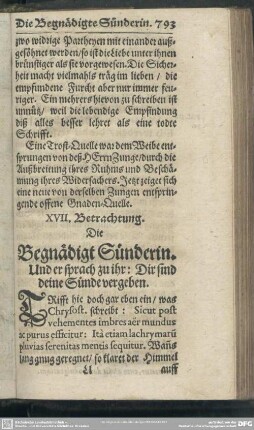 Die Begnädigte Sünderin. 793
zwo widrige Partheyen mit einander auß-
gesöhnet werden / so ist die Liebe unter ihnen
brünstiger als sie vorgewesen. Die Sicher-
heit macht vielmahls träg im lieben / die
empfundene Furcht aber nur immer feu-
riger. Ein mehrers hievon zu schreiben ist
unnütz / weil die lebendige Empfindung
diß alles besser lehret als eine todte
Schrifft.
Eine Trost-Quelle war dem Weibe ent-
sprungen von deß HErrn Zunge / durch die
Außbreitung ihres Ruhms und Beschä-
mung ihres Widersachers. Jetzt zeiget sich
eine neue von derselben Zungen entsprin-
gende offene Gnaden-Quelle.
XVII. Betrachtung.
Die
Begnädigt Sünderin.
Und er sprach zu ihr: Dir sind
deine Sünde vergeben.
TRifft hie doch gar eben ein / was
Chrysost. schreibt: Sicut post
vehementes imbres aër mundus
ac purus efficitur; Ità etiam lachrymarũ
pluvias serenitas mentis sequitur. Wañs
lang gnug geregnet / so klaret der Himmel
auff